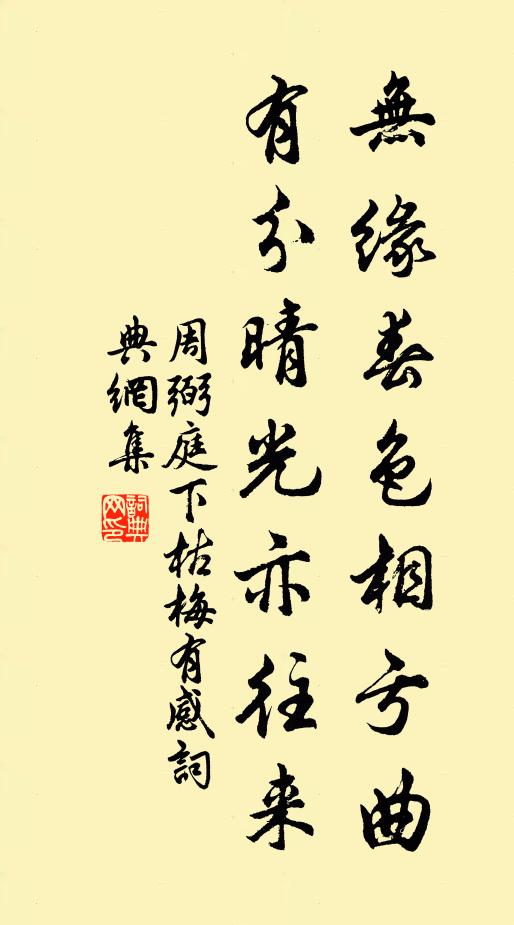 無緣春色相亏曲
有分晴光亦往来
周弼庭下枯梅有感詞
典網集
詞典
网印